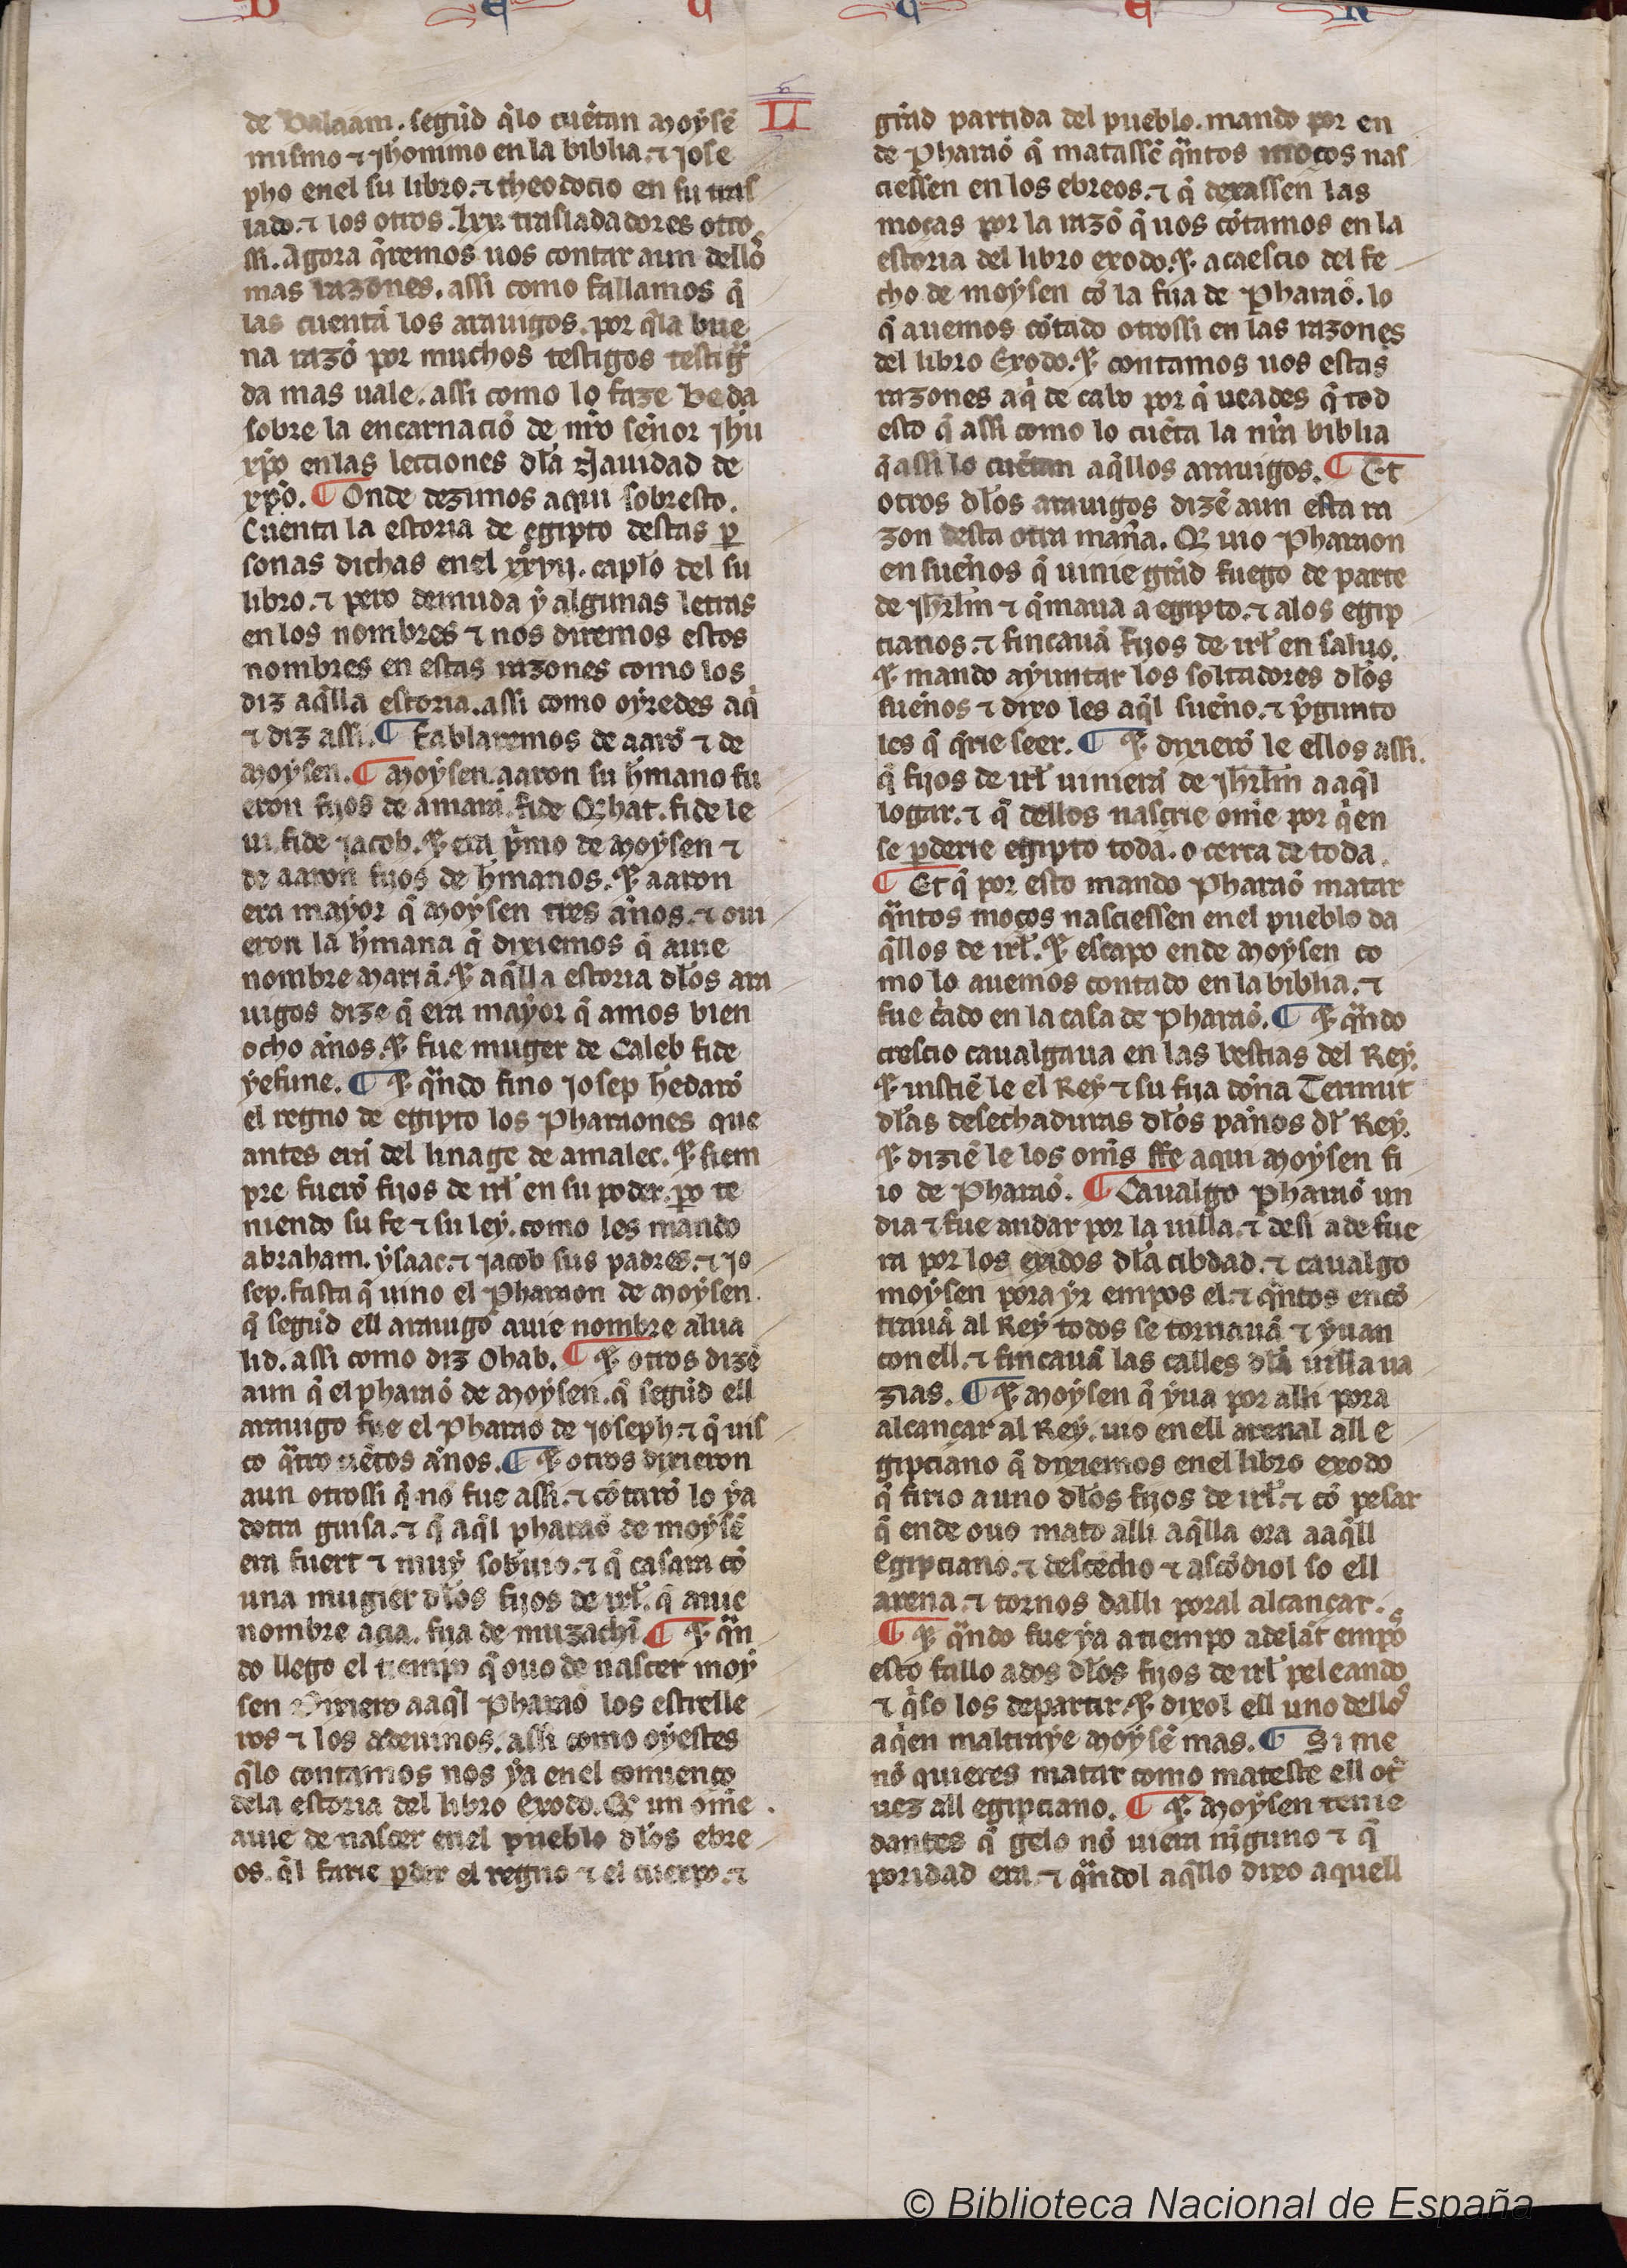 de Balaam. segũd q̃lo cuẽtan Moysẽ
mismo ⁊ Jheronimo en la biblia. ⁊ Jose
pho enel su libro. ⁊ theodocio en su tras
lado. ⁊ los otros .lxx. trasladadores otro
ssi. Agora q̃remos uos contar aun dello
mas razones. assi como fallamos q̃
las cuentã los arauigos. por q̃la bue
na razõ por muchos testigos testig̃
da mas uale. assi como lo faze Beda
sobre la encarnaciõ de nr̃o sennor jhũ
xp̃o enlas lectiones dl̃a Nauidad de
xp̃o. ¶ Onde dezimos aqui sobresto.
Cuenta la estoria de egipto destas ꝑ
sonas dichas enel xxvij. capĩo del su
libro. ⁊ pero demuda y algunas letras
en los nombres ⁊ nos diremos estos
nombres en estas razones como los
diz aq̃lla estoria. assi como oyredes aq̃
⁊ diz assi. ¶ Fablaremos de aarõ ⁊ de
Moysen. ¶ Moysen. aaron su hr̃mano fu
eron fijos de amarã. fide Chat. fide le
ui. fide jacob. ⁊ era p̃mo de Moysen ⁊
de aaron fijos de hr̃manos. ⁊ aaron
era mayor q̃ Moysen tres annos. ⁊ oui
eron la hr̃mana q̃ dixiemos q̃ auie
nombre Mariã. ⁊ aq̃lla estoria dl̃os ara
uigos dize q̃ era mayor q̃ amos bien
ocho annos. ⁊ fue muger de Caleb fide
yefune. ¶ ⁊ q̃ndo fino Josep h̃edarõ
el regno de egipto los Pharaones que
antes erã del linage de amalec. ⁊ siem
pre fuerõ fijos de irl̃ en su poder. ꝑo te
niendo su fe ⁊ su ley. como les mando
abraham. ysaac. ⁊ jacob sus padres. ⁊ jo
sep. fasta q̃ uino el Pharaon de Moysen.
q̃ segũd ell arauigo auie nombre alua
lid. assi como diz Ohab. ¶ ⁊ otros dizẽ
aun q̃ el pharaõ de Moysen. q̃ segũd ell
arauigo fue el Pharaõ de Joseph. ⁊ q̃ uis
co q̃tro çiẽtos annos. ¶ ⁊ otros dixieron
aun otrossi q̃ nõ fue assi. ⁊ cõtarõ lo ya
dotra guisa. ⁊ q̃ aq̃l pharaõ de moysẽ
era fuert ⁊ muy soberuio. ⁊ q̃ casara cõ
una mugier dl̃os fijos de irl̃. q̃ auie
nombre acia. fija de muzachĩ. ¶ ⁊ q̃n
do llego el tiempo q̃ ouo de nascer moy
sen dixierõ aaq̃l Pharaõ los estrelle
ros ⁊ los adeuinos. assi como oyestes
q̃lo contamos nos ya enel comienço
dela estoria del libro Exodo. Q̃ un omẽ
auie de nascer enel pueblo dl̃os ebre
os. q̃l farie ꝑder el regno ⁊ el cuerpo. ⁊
L
grãd partida del pueblo. mando por en
de Pharaõ q̃ matassẽ q̃ntos moços nas
ciessen en los ebreos. ⁊ q̃ dexassen las
moças por la razõ q̃ uos cõtamos en la
estoria del libro exodo. ⁊ acaescio del fe
cho de moysen cõ la fija de Pharaõ. lo
q̃ auemos cõtado otrossi en las razones
del libro Exodo. ⁊ contamos uos estas
razones aq̃ de cabo por q̃ ueades q̃ tod
esto q̃ assi como lo cuẽta la nr̃a biblia
q̃ assi lo cuẽtan aq̃llos arauigos. ¶ Et
otros dl̃os arauigos dizẽ aun esta ra
zon desta otra manr̃a. Q̃ uio Pharaon
en suennos q̃ uinie grãd fuego de parte
de Jhrl̃m ⁊ q̃maua a egipto. ⁊ alos egip
cianos. ⁊ fincauã fijos de irl̃ en saluo.
⁊ mando ayuntar los soltadores dl̃os
suennos ⁊ dixo les aq̃l suenno. ⁊ p̃gunto
les q̃ q̃rie seer. ¶ ⁊ dixierõ le ellos assi.
q̃ fijos de irl̃ uinierã de Jhrl̃m aaq̃l
logar. ⁊ q̃ dellos nascrie omẽ por q̃en
se ꝑderie egipto toda. o cerca de toda.
¶ Et q̃ por esto mando Pharaõ matar
q̃ntos moços nasciessen enel pueblo da
q̃llos de irl̃. ⁊ escapo ende Moysen co
mo lo auemos contado en la biblia. ⁊
fue c̃ado en la casa de Pharaõ. ¶ ⁊ q̃ndo
crescio caualgaua en las bestias del Rey.
⁊ uistiẽ le el Rey ⁊ su fija donna Termut
dl̃as desechaduras dl̃os pannos dl̃ Rey.
⁊ diziẽ le los omẽs ffe aqui Moysen fi
io de Pharaõ. ¶ Caualgo Pharaõ un
dia ⁊ fue andar por la uilla. ⁊ desi a de fue
ra por los exidos dl̃a cibdad. ⁊ caualgo
moysen pora yr empos el. ⁊ q̃ntos encõ
trauã al Rey todos se tornauã ⁊ yuan
con ell. ⁊ fincauã las calles dl̃a uilla ua
zias. ¶ ⁊ Moysen q̃ yua por alli pora
alcançar al Rey. uio enell arenal all e
gipciano q̃ dixiemos enel libro exodo
q̃ firio a uno dl̃os fijos de irl̃. ⁊ cõ pesar
q̃ ende ouo mato alli aq̃lla ora aaq̃ll
Egipciano. ⁊ descecho ⁊ ascõdiol so ell
arena. ⁊ tornos dalli poral alcançar.
¶ ⁊ q̃ndo fue ya a tiempo adelãt empos
esto fallo ados dl̃os fijos de irl̃ peleando
⁊ q̃so los departir. ⁊ dixol ell uno dellos
aq̃en maltraye Moysẽ mas. ¶ Si me
nõ quieres matar como mateste ell otr̃
uez all egipciano. ¶ ⁊ Moysen tenie
dantes q̃ gelo nõ uiera nĩguno ⁊ q̃
poridad era. ⁊ q̃ndol aq̃llo dixo aquell
© Biblioteca Nacional de España